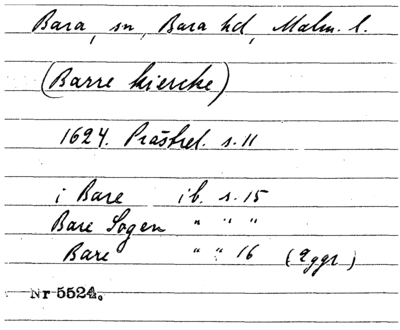 Bara, sn, Bara hd, Malm. l.
(Barre kiercke)
1624. Prästrel. s. 11
i Bare ib. s. 15
Bare Sogen " " "
Bare " " 16 (2 ggr)
Nr 5524.